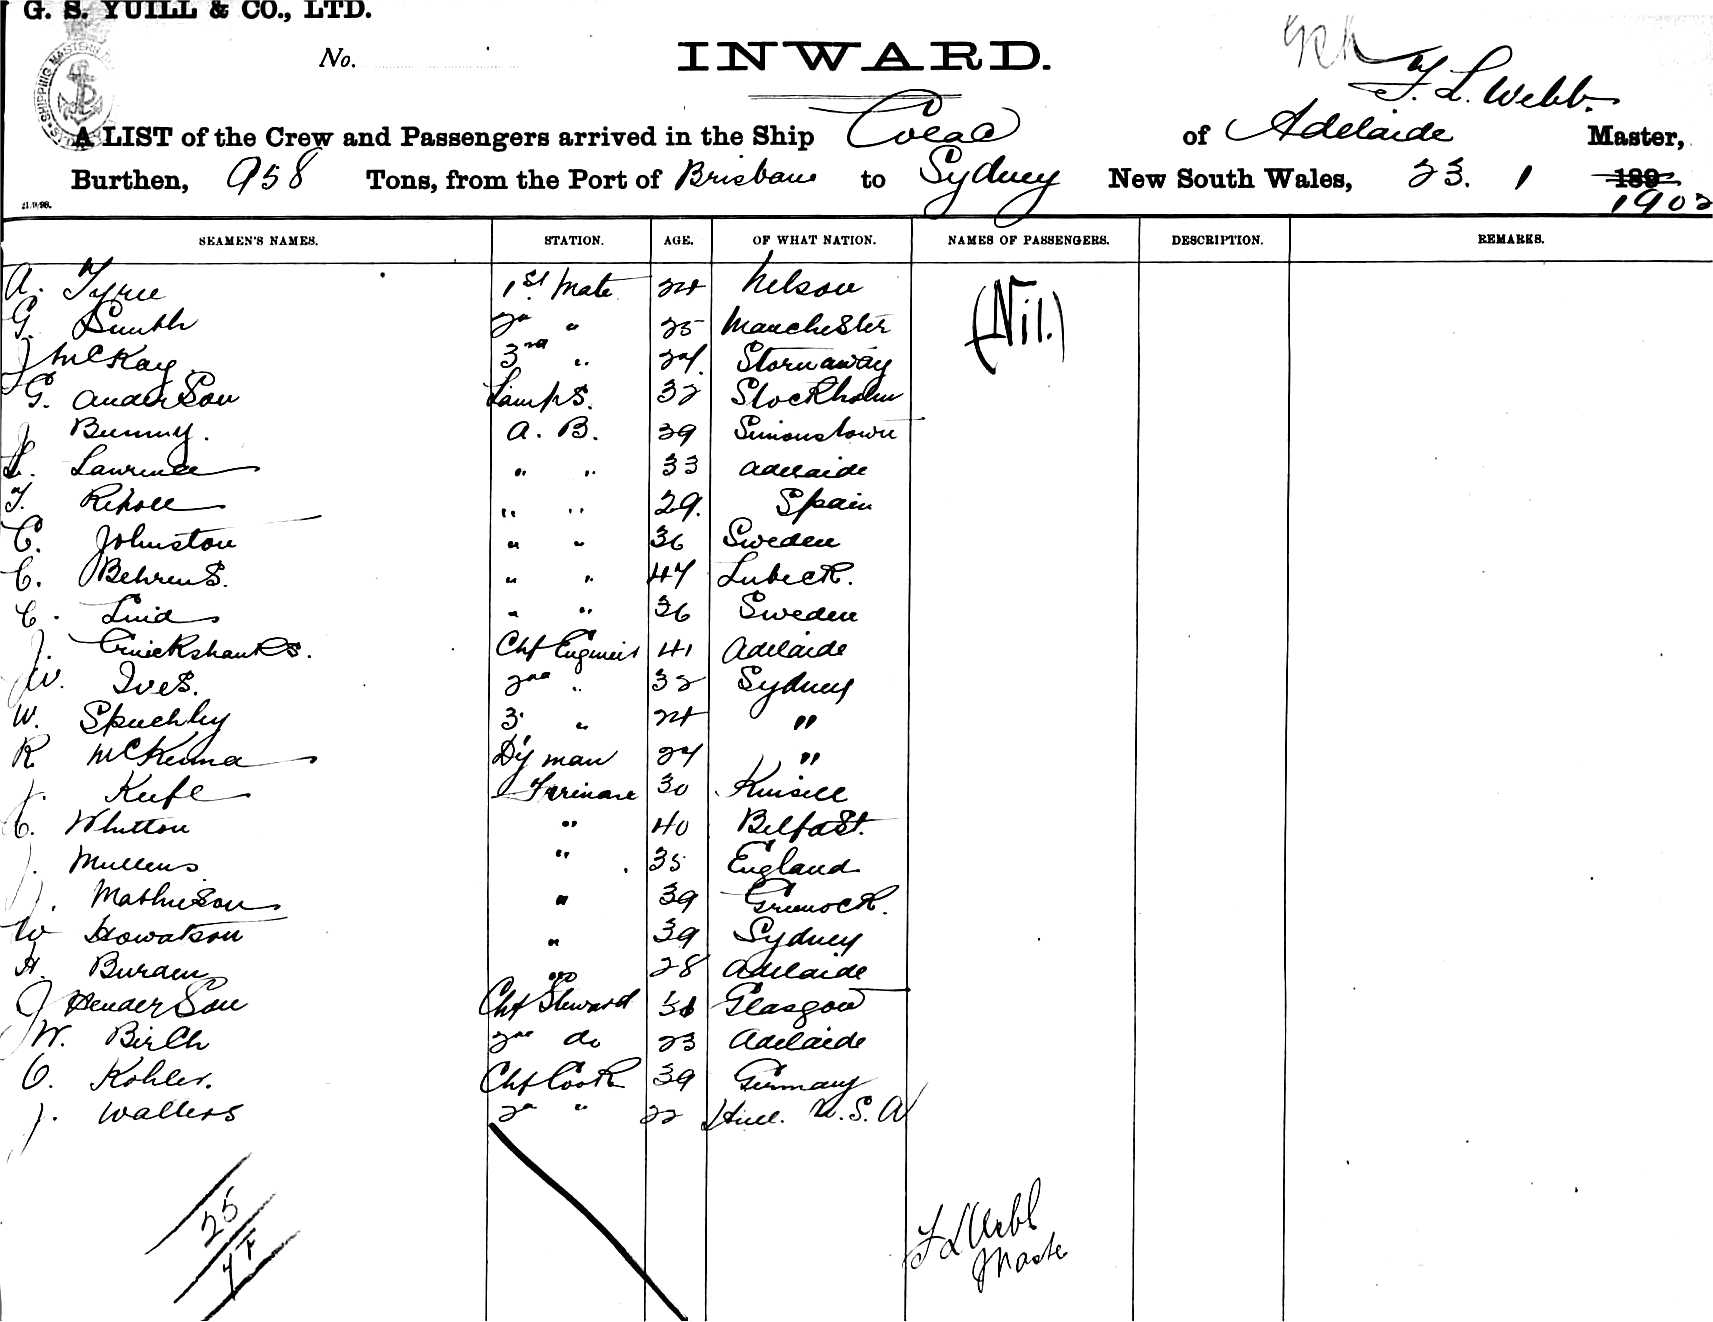 G. S. YUILL & CO., LTD.
No.
INWARD.
F. L. Webb.
A LIST of the Crew and Passengers arrived in the Ship Colac of Adelaide Master,
Burthen, 958 Tons, from the Port of Brisbane to Sydney New South Wales, 23. 1 189
1902
SEAMEN'S NAMES. STATION. AGE. OF WHAT NATION. NAMES OF PASSENGERS. DESCRIPTION. REMARKS.
A. Tyrie 1st Mate 24 Nelson (Nil.)
G. Smith 2nd " 25 Manchester
J McKay 3rd " 24. Stornaway
G. Anderson Lamps. 32 Stockholm
J Bunny. A. B. 39 Simonstown
L. Lawrence " " 33 Adelaide
T. " " 29. Spain
C. Johnston " " 36 Sweden
C. Behrens. " " 47 Lubeck.
C. Lind " " 36 Sweden
J. Cruickshanks. Chf Engineer 41 Adelaide
W. Ives. 2nd " 32 Sydney
W. Spuchley 3 " 24 "
R McKenna Dy man 27 "
J. Keefe Fireman 30 Kinsale
C. Whitton " 40 Belfast.
J. Mullens " 35 England
J. Mathieson " 39 Greenock.
W Howatson " 39 Sydney
H. Burden " 28 Adelaide
J Henderson Chf Steward Glasgow
W. Birch 2nd do 23 Adelaide
O. Kohler. Chf Cook 39 Germany
J. Walters 2nd " 22 U.S.A
25
F L Webb
Master